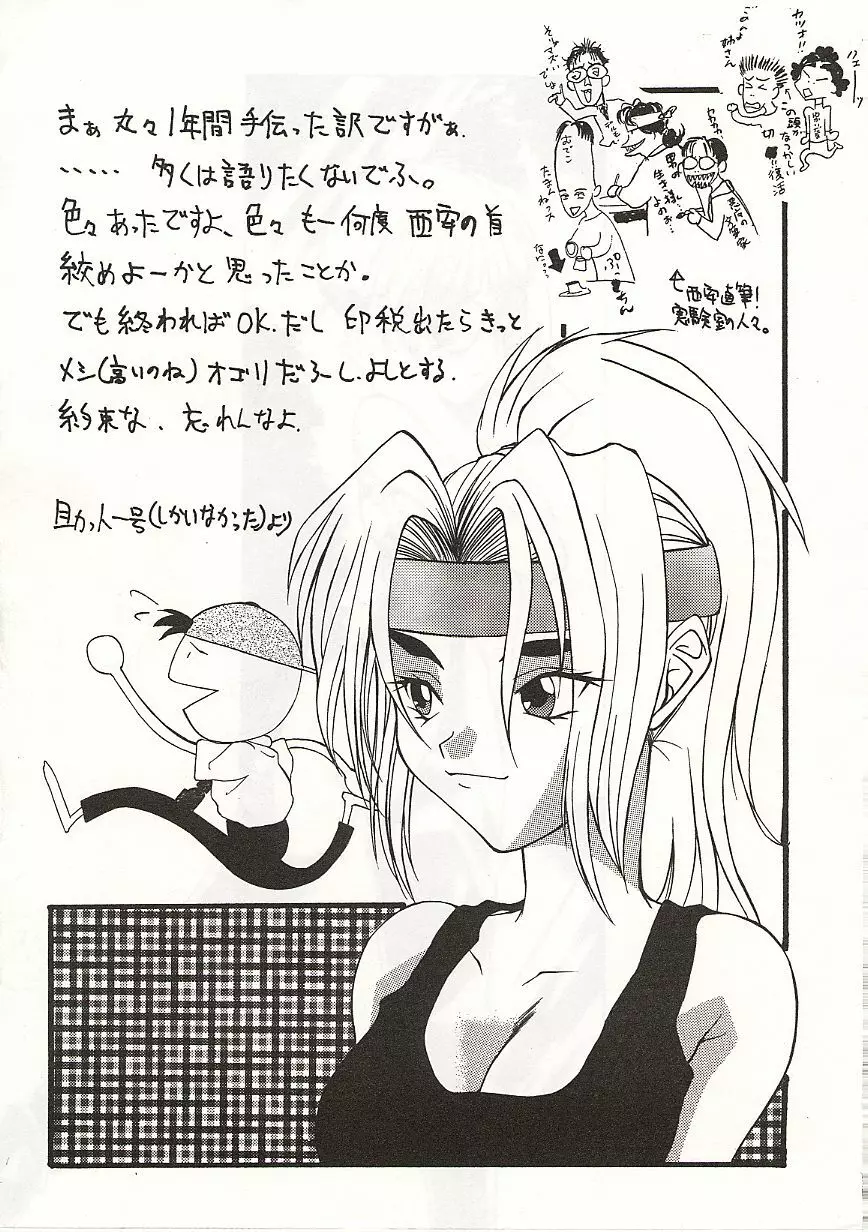 まぁ 丸々1年間手伝った訳ですがぁ.
····· 多くは語りたくないでふ。
色々あったですよ、色々 もー何度 西安の首
絞めよーかと思ったことか。
でも終わればOK.だし 印税出たらきっと
メシ(高いのね)オゴリだろーし.よしとする.
約束な、忘れんなよ.
助っ人一号(しかいなかった)より
そりゃマズいでしょ
おでこ
男の生き様よのお…
カツオ!!
姉さん
この頭がなつかしい!!
復活
↑西安直筆!
実験室の人々。